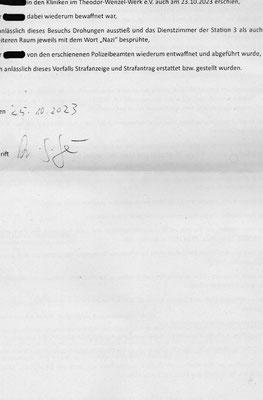 in den Kliniken im Theodor-Wenzel-Werk e.V. auch am 23.10.2023 erschien,
r dabei wiederum bewaffnet war,
anlässlich dieses Besuchs Drohungen ausstieß und das Dienstzimmer der Station 3 als auch
eiteren Raum jeweils mit dem Wort „Nazi" besprühte,
r von den erschienenen Polizeibeamten wiederum entwaffnet und abgeführt wurde,
h anlässlich dieses Vorfalls Strafanzeige und Strafantrag erstattet bzw. gestellt wurden.
en 25.10.2023
rift